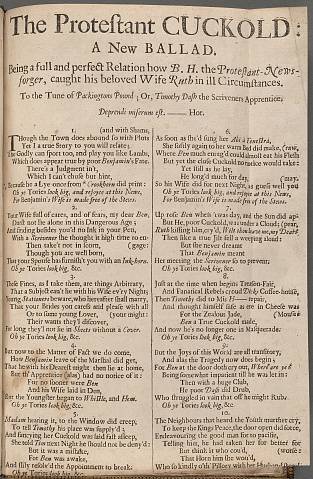 The Proteſtant CUCKOLD:
A New BALLAD.
Being a full and perfect Relation how B. H. the Proteſtant-News-
forger, caught his beloved Wife Ruth in ill Circumſtances.
To the Tune of Packingtons Pound; Or, Timothy Daſh the Scriveners Apprentice.
Deprendi miſerum eſt. —— Hor.
1.
THough the Town does abound ſo with Plots
Yet I a true Story to you will relate;
The Godly can ſport too, and play you like Lambs,
Which does appear true by poor Benjamin's Fate.
There's a Judgment in't,
Which I can't ſhun but hint,
Becauſe he a Lye once from Crookhorn did print:
Oh ye Tories look big, and rejoyce at this News,
For Benjamin's Wife is made free of the Stews.
2.
Your Wife full of cares, and of fears, my dear Ben,
Durſt not be alone in this Dangerous Age;
And finding beſides you'd no Ink in your Pen,
With a Scrivener ſhe thought it high time to en-
Then take't not in ſcorn, (gage:
Though you are well born,
That your Spouſe has furniſh'd you with an Ink-horn.
Oh ye Tories look big, &c.
3.
Theſe Fines, as I take them, are things Arbitrary,
That a Subject can't lie with his Wife ev'ry Night;
Young Stationers beware, who hereafter ſhall marry,
That your Brides you careſs and pleaſe with all
Or ſome young Lover, (your might:
Their wants they'l diſcover,
For long they'l not lie in Sheets without a Cover.
Oh ye Tories look big, &c.
4.
But now to the Matter of Fact we do come,
How Benjamin leave of the Marſhal did get,
That he with his Deareſt night then lie at home,
But
For no ſooner was Ben
And his Wife laid in Den,
But the Youngſter began to Whiſtle, and Hem.
Oh ye Tories look big, &c.
5.
Madam hearing it, to the Window did creep,
To tell Timothy his place was ſupply'd;
And fancying her Cuckold was laid faſt aſleep,
She told Tim next Night he ſhould not be deny'd:
But it was a miſtake,
For Ben was awake,
And ſlily reſolv'd the Appointment to break.
6.
As ſoon as ſhe'd ſung her
She ſoftly again to her warm Bed did make,
Where Ben much enrag'd could almoſt eat his Fleſh
But yet the cloſe Cuckold no noiſe would make:
Yet ſtill as he lay,
He long'd much for day,
So his Wife did for next Night, as gueſs well you
Oh ye Tories look big, and rejoyce at this News, (may.
For Benjamin's Wife is made free of the Stews.
7.
Up roſe Ben when 't was day, and the Sun did ap-
But He, poor Cuckold, was under a Cloud; (pear,
Ruth kiſſing him, cry'd, Wilt thou leave me, my Dear?
Then like a true Jilt fell a weeping aloud:
But ſhe never dreamt
That Benjamin meant
Her meeting the Scrivener ſo to prevent:
Oh ye Tories look big, &c.
8.
Juſt at the time when begins Treaſon-Fair,
And Fanatical Rebels croud Coffee-houſe,
Then Timothy did to Miſs H—— repair,
And thought himſelf ſafe as in Cheeſe was
For the Zealous Jade, (Mouſe
Ben a True Cuckold made,
And now he's no longer one in Maſquerade.
Oh ye Tories look big, &c.
9.
But the Joys of this World are all tranſitory,
And alas the Tragedy now does begin;
For Ben at the door doth cry out, Where are ye?
Being ſomewhat impatient till he was let in:
Then with a huge Club,
He poor Daſh did Drub,
Who ſtruggled in vain that off he might Rub.
Oh ye Tories look big, &c.
10.
The Neighbours that heard the Youth murther cry,
To keep the Kings Peace, the door open did force,
Endeavouring the good man for to pacifie,
Telling him, he had taken her for better for
But think it who cou'd, (worſe:
That Horn ſhe wou'd,
Who ſo kindly